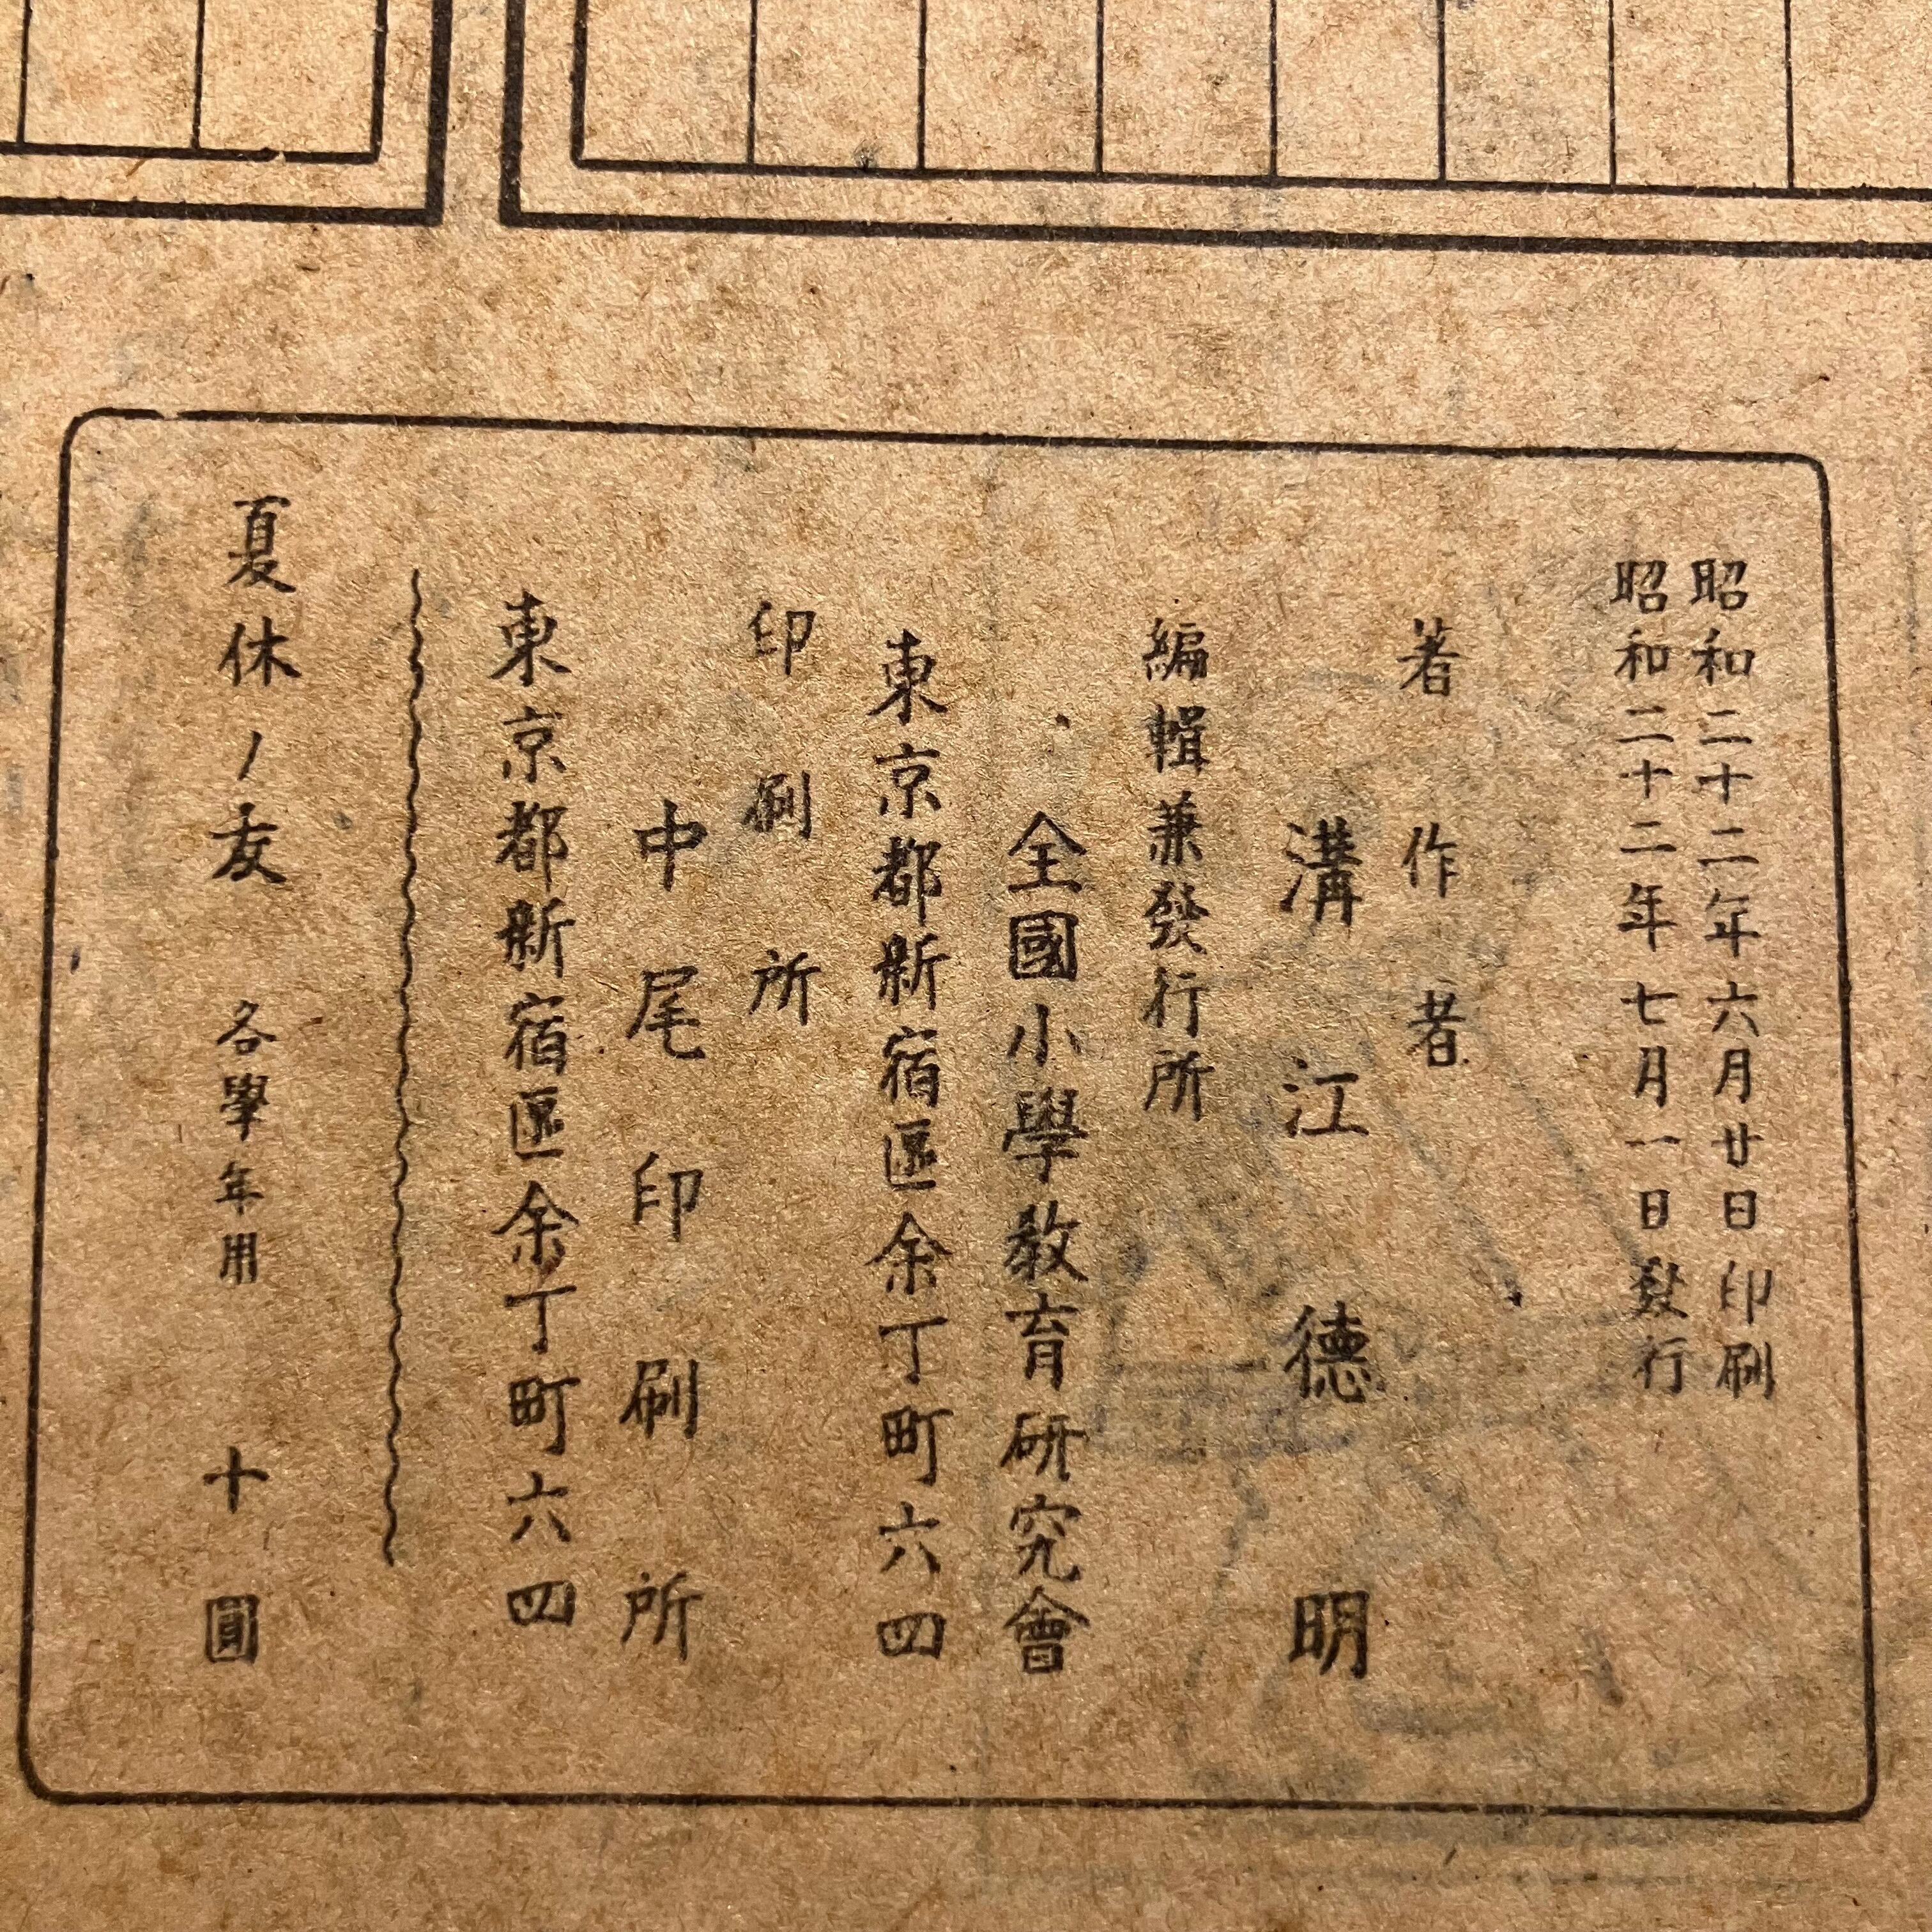 昭和二十二年六月廿日印刷
昭和二十二年七月一日發行
著作者
溝江德明
編輯兼發行所
全國小學教育研究會
東京都新宿區余丁町六四
印刷所
中尾印刷所
東京都新宿區余丁町六四
夏休ノ友 各學年用 十圓